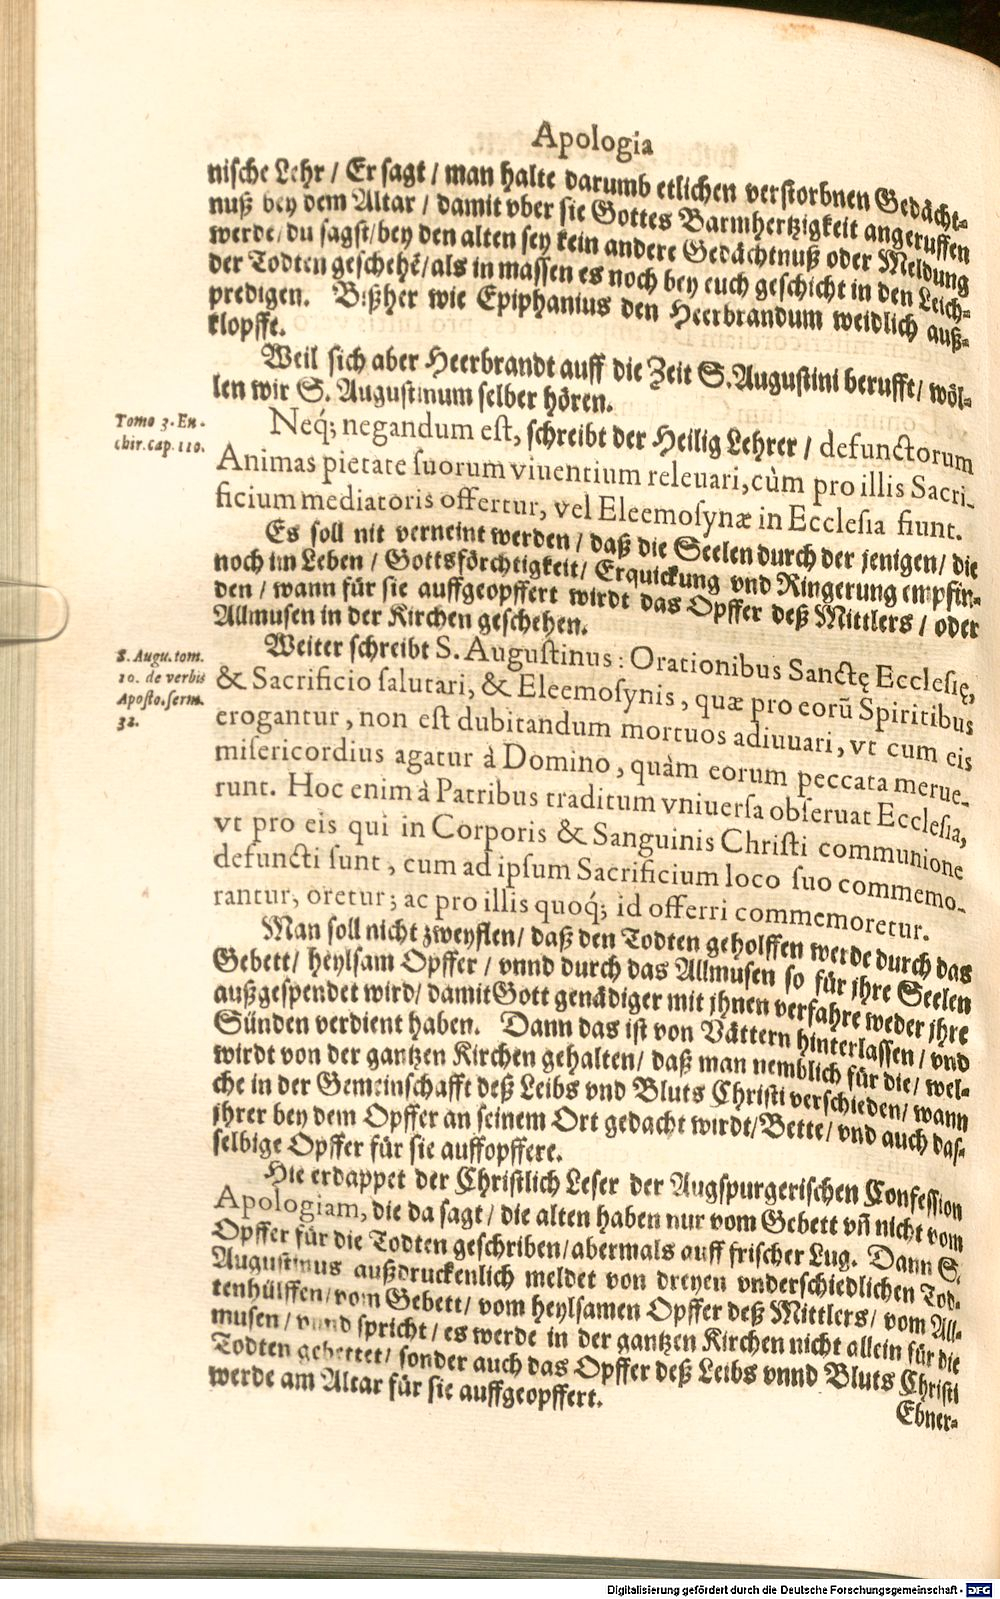 Apologia
nische Lehr / Er sagt / man halte darumb etlichen verstorbnen Gedächt-
nuß bey dem Altar / damit vber sie Gottes Barmhertzigkeit angeruffen
werde / du sagst / bey den alten sey kein andere Gedächtnuß oder Meldung
der Todten geschehẽ / als in massen es noch bey euch geschicht in den Leich-
predigen. Bißher wie Epiphanius den Heerbrandum weidlich auß-
klopfft.
Weil sich aber Heerbrandt auff die Zeit S. Augustini berufft / wöl-
len wir S. Augustinum selber hören.
Tomo 3. En-
chir. cap. 110.
Neq́; negandum est, schreibt der Heilig Lehrer / defunctorum
Animas pietate suorum viuentium releuari, cùm pro illis Sacri-
ficium mediatoris offertur, vel Eleemosynæ in Ecclesia fiunt.
Es soll nit verneint werden / daß die Seelen durch der jenigen / die
noch im Leben / Gottsförchtigkeit / Erquickung vnd Ringerung empfin-
den / wann für sie auffgeopffert wirdt das Opffer deß Mittlers / oder
Allmusen in der Kirchen geschehen.
S. Augu. tom.
10. de verbis
Aposto. serm.
32.
Weiter schreibt S. Augustinus: Orationibus Sanctę Ecclesię,
& Sacrificio salutari, & Eleemosynis, quæ pro eorũ Spiritibus
erogantur, non est dubitandum mortuos adiuuari, vt cum eis
misericordius agatur à Domino, quàm eorum peccata merue-
runt. Hoc enim à Patribus traditum vniuersa obseruat Ecclesia,
vt pro eis qui in Corporis & Sanguinis Christi communione
defuncti sunt, cum ad ipsum Sacrificium loco suo commemo-
rantur, oretur; ac pro illis quoq́; id offerri commemoretur.
Man soll nicht zweyflen / daß den Todten geholffen werde durch das
Gebett / heylsam Opffer / vnnd durch das Allmusen so für jhre Seelen
außgespendet wird / damit Gott genädiger mit jhnen verfahre weder jhre
Sünden verdient haben. Dann das ist von Vättern hinterlassen / vnd
wirdt von der gantzen Kirchen gehalten / daß man nemblich für die / wel-
che in der Gemeinschafft deß Leibs vnd Bluts Christi verschieden / wann
jhrer bey dem Opffer an seinem Ort gedacht wirdt / Bette / vnd auch das-
selbige Opffer für sie auffopffere.
Hie erdappet der Christlich Leser der Augspurgerischen Confession
Apologiam, die da sagt / die alten haben nur vom Gebett vñ nicht vom
Opffer für die Todten geschriben / abermals auff frischer Lug. Dann S.
Augustinus außdruckenlich meldet von dreyen vnderschiedlichen Tod-
tenhülffen / vom Gebett / vom heylsamen Opffer deß Mittlers / vom All-
musen / vnnd spricht / es werde in der gantzen Kirchen nicht allein für die
Todten gebettet / sonder auch das Opffer deß Leibs vnnd Bluts Christi
werde am Altar für sie auffgeopffert.
Ebner-
Digitalisierung gefördert durch die Deutsche Forschungsgemeinschaft - DFG